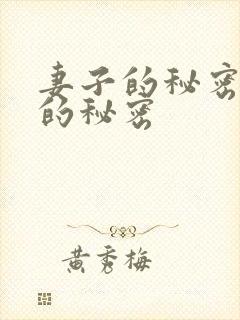 妻子的秘密
的秘密
黄秀梅